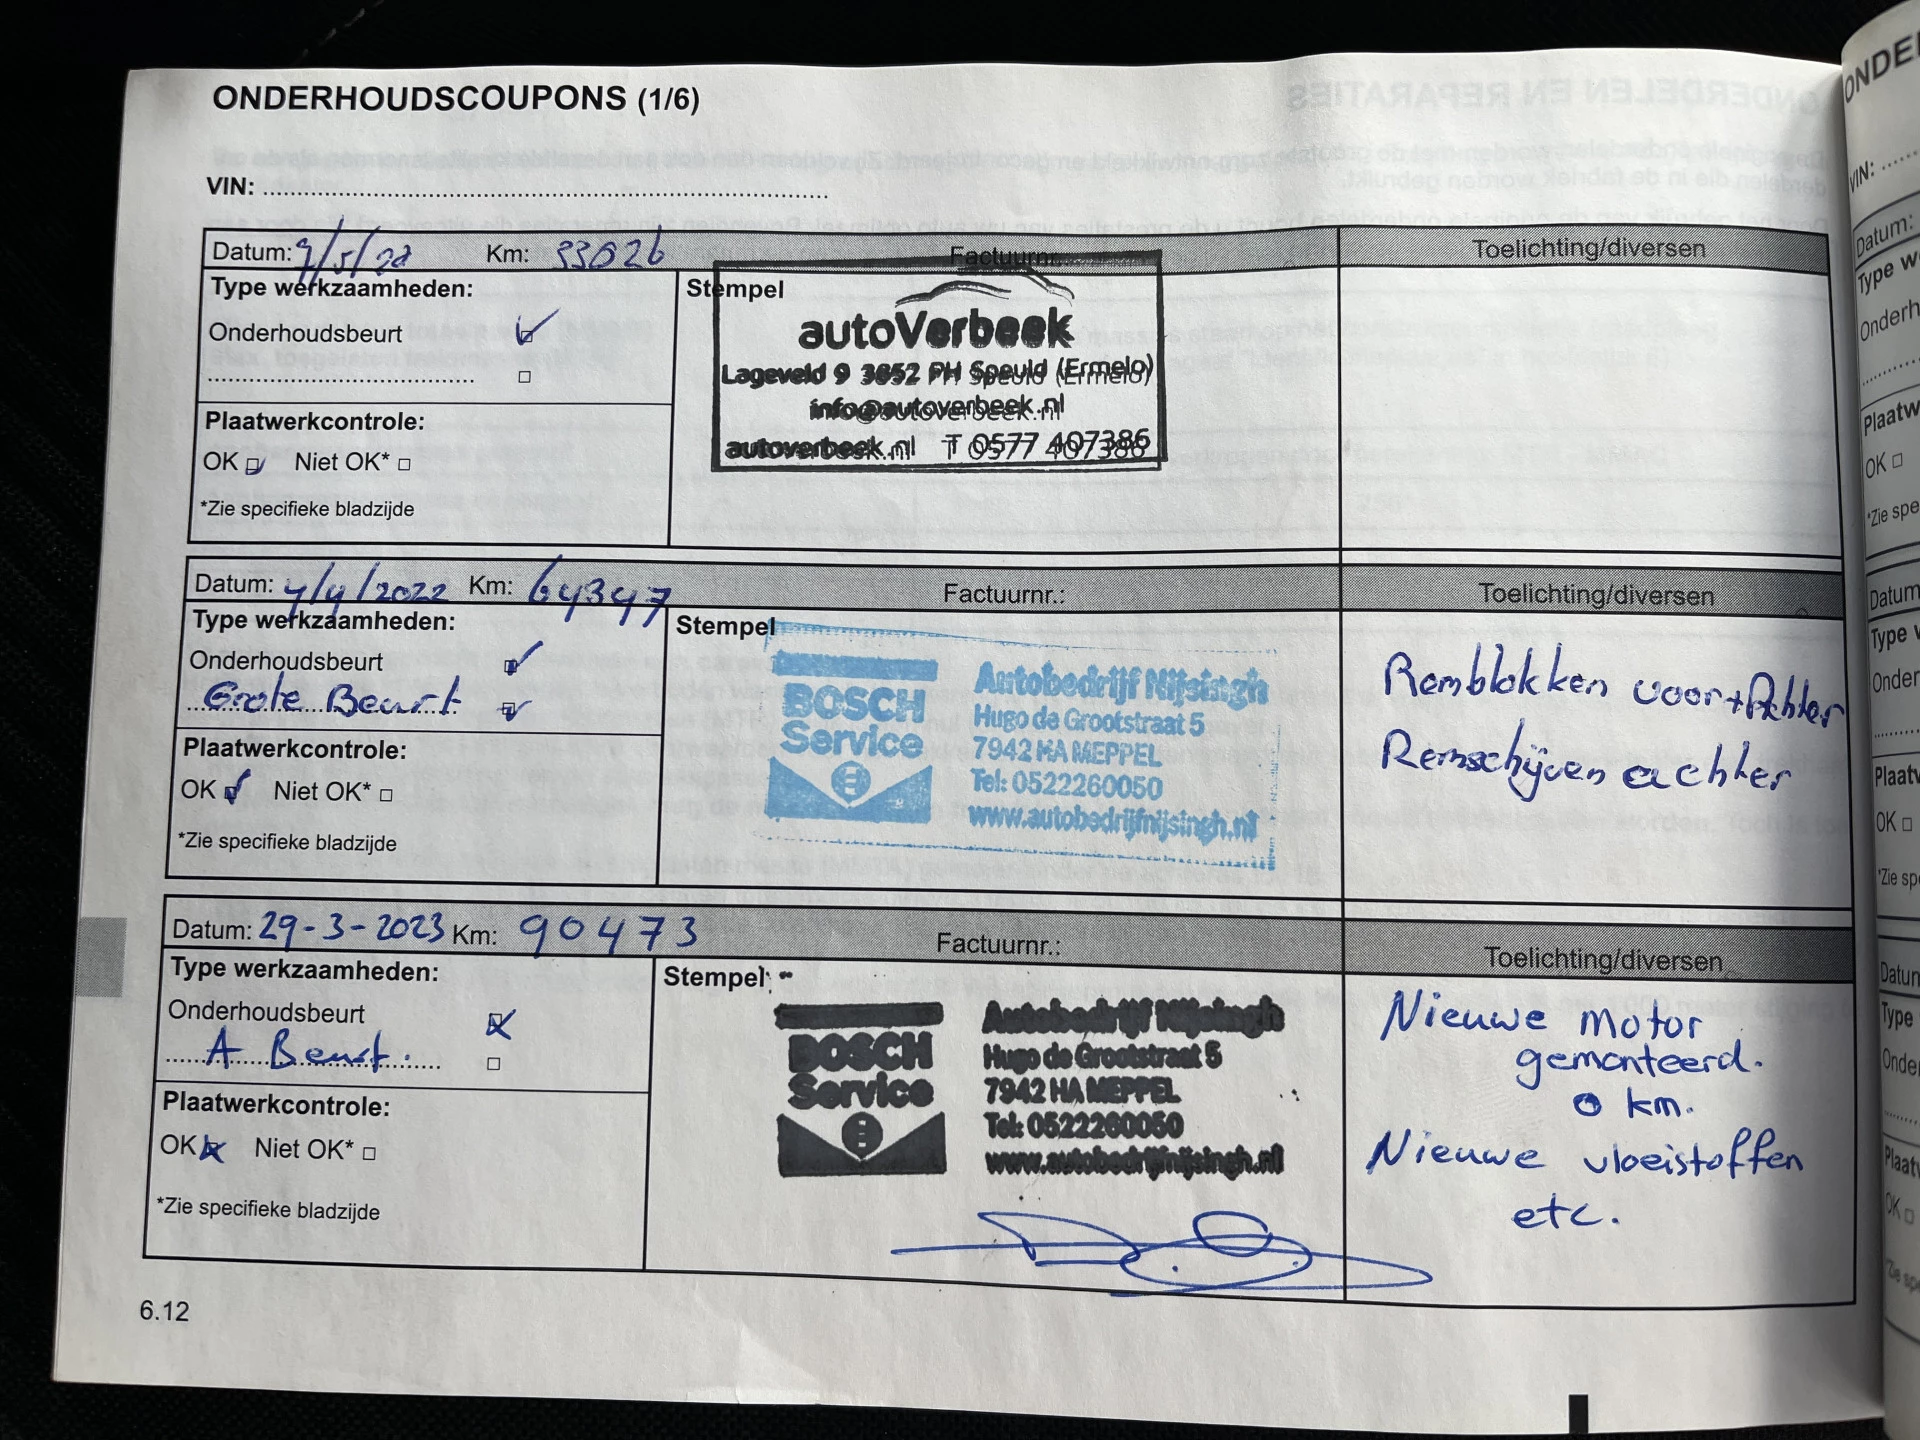 ONDERHOUDSCOUPONS (1/6)
VIN:
Datum: Km: 33026 Factuurnr.: Toelichting/diversen
Type werkzaamheden:
Onderhoudsbeurt
Plaatwerkcontrole:
OK Niet OK*
*Zie specifieke bladzijde
Stempel
autoVerbeek
Lageveld 9 3852 PH Speuld (Ermelo)
info@autoverbeek.nl
autoverbeek.nl T 0577 407386
Datum: 4/4/2022 Km: 64347 Factuurnr.: Toelichting/diversen
Type werkzaamheden:
Onderhoudsbeurt
Grote Beurt
Plaatwerkcontrole:
OK Niet OK*
*Zie specifieke bladzijde
Stempel
BOSCH
Service
Autobedrijf Nijsingh
Hugo de Grootstraat 5
7942 HA MEPPEL
Tel: 0522260050
www.autobedrijfnijsingh.nl
Remblokken voor + Achter
Remschijven achter
Datum: 29-3-2023 Km: 90473 Factuurnr.: Toelichting/diversen
Type werkzaamheden:
Onderhoudsbeurt
A Beurt.
Plaatwerkcontrole:
OK Niet OK*
*Zie specifieke bladzijde
Stempel:
BOSCH
Service
Autobedrijf Nijsingh
Hugo de Grootstraat 5
7942 HA MEPPEL
Tel: 0522260050
www.autobedrijfnijsingh.nl
Nieuwe motor
gemonteerd.
0 km.
Nieuwe vloeistoffen
etc.
6.12
ONDE
VIN:
Datum:
Type w
Onderh
Plaatw
OK
*Zie spe
Datum
Type
Onder
Plaatw
OK
*Zie sp
Datum
Type
Onde
Plaat
OK
*Zie spe